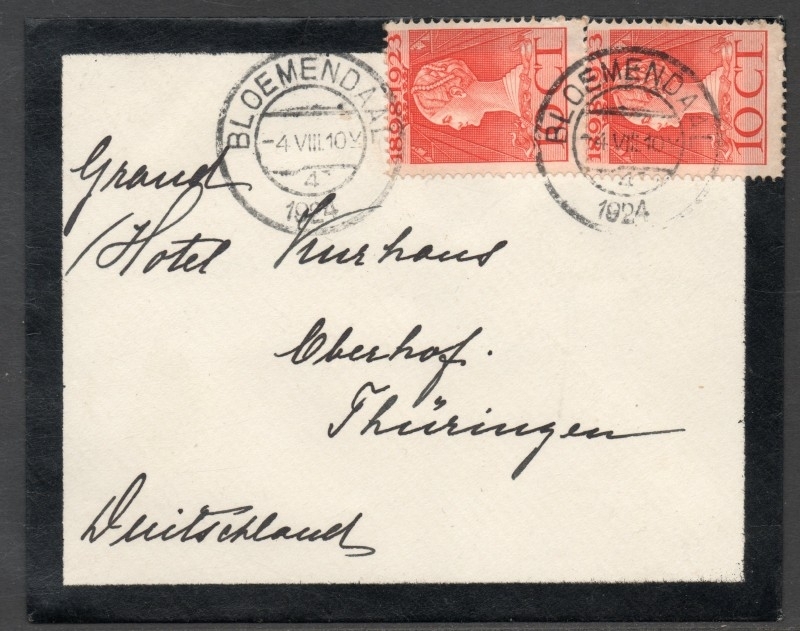 BLOEMENDAAL
-4 VIII.10V
4
1924
1898-1923
10 CT
BLOEMENDAAL
-4 VIII.10
4
1924
1898
3
10 CT
Grand
Hotel Kurhaus
Oberhof.
Thüringen
Deutschland